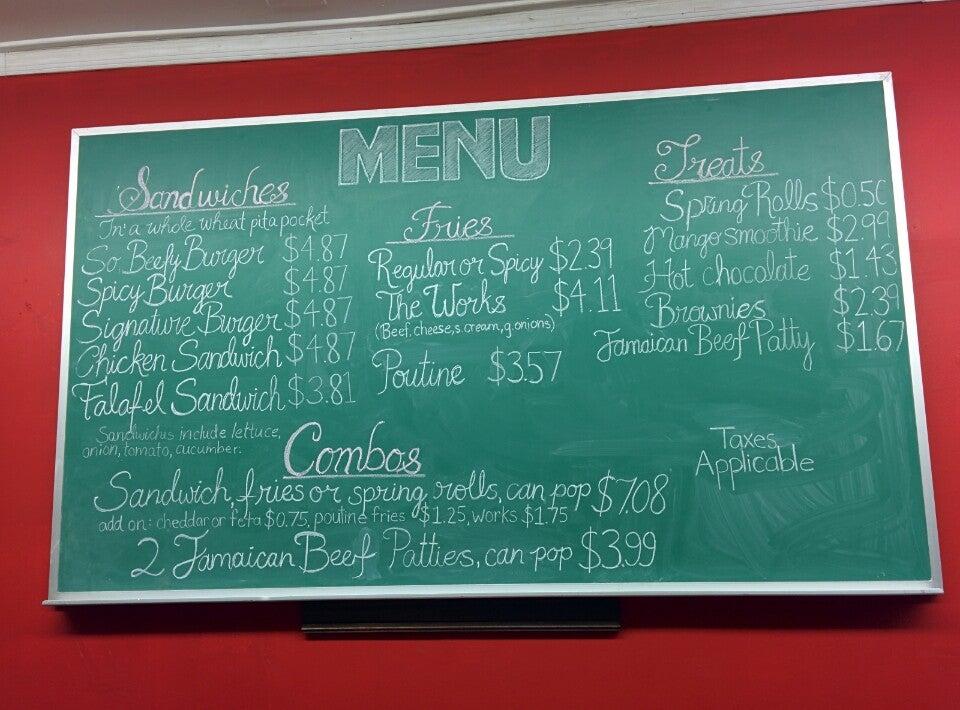 MENU
Sandwiches
In a whole wheat pita pocket
So Beefy Burger $4.87
Spicy Burger $4.87
Signature Burger $4.87
Chicken Sandwich $4.87
Falafel Sandwich $3.81
Sandwichs include lettuce,
onion, tomato, cucumber.
Fries
Regular or Spicy $2.39
The Works $4.11
(Beef, cheese, s. cream, g. onions)
Poutine $3.57
Treats
Spring Rolls $0.50
Mango smoothie $2.99
Hot chocolate $1.43
Brownies $2.39
Jamaican Beef Patty $1.67
Taxes
Applicable
Combos
Sandwich, fries or spring rolls, can pop $7.08
add on: cheddar or feta $0.75, poutine fries $1.25, works $1.75
2 Jamaican Beef Patties, can pop $3.99